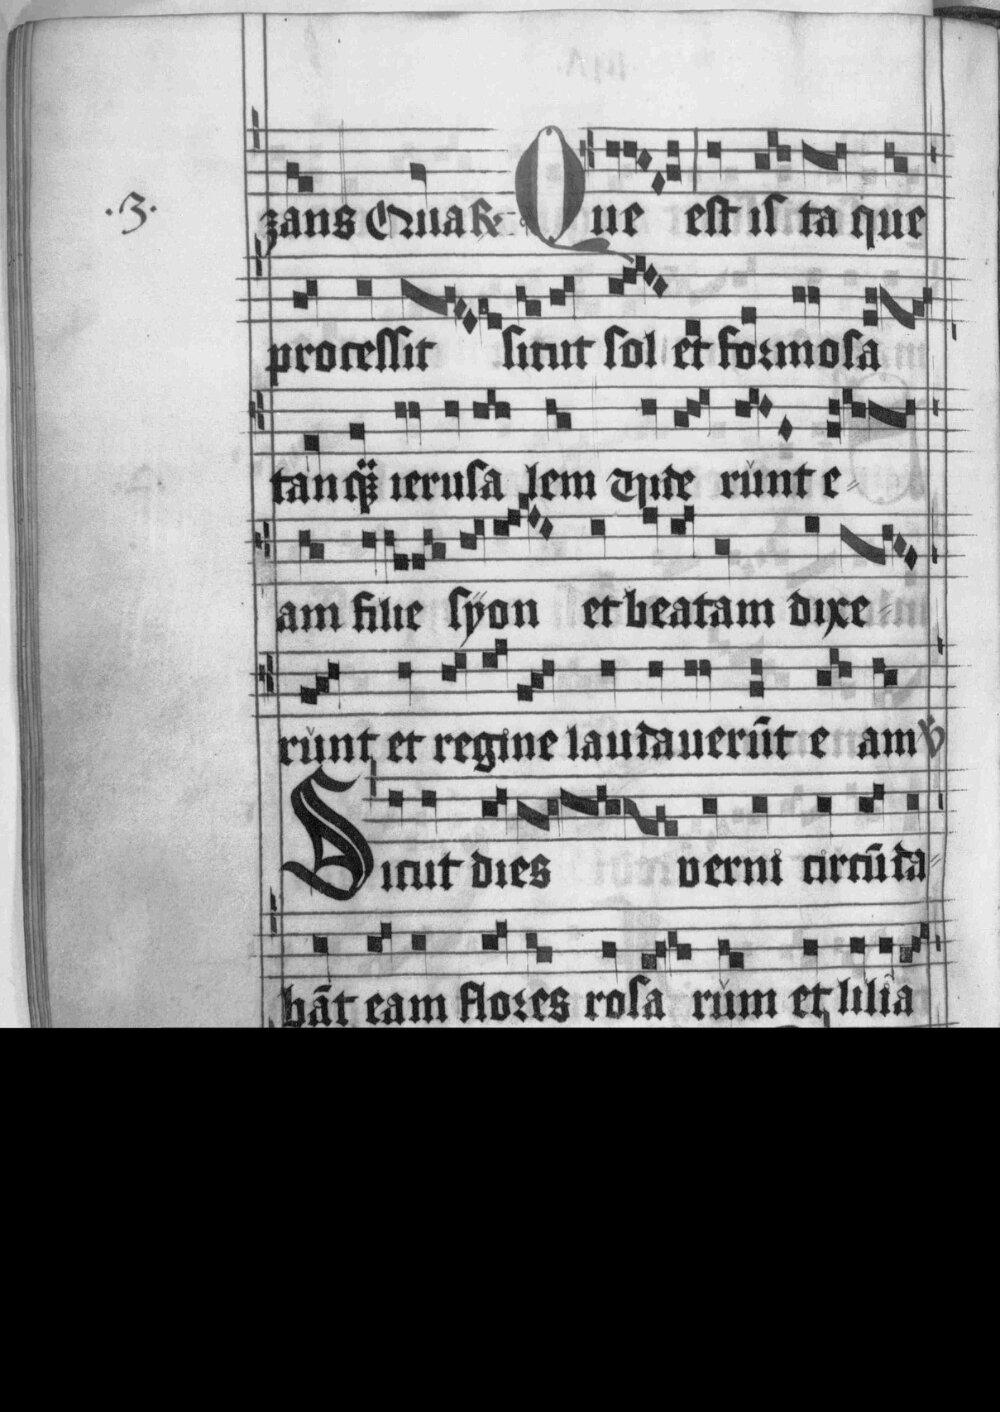 .3.
zans Quasi Que est is ta que
processit sicut sol et formosa
tanq̃ ierusa lem Uide runt e-
am filie syon et beatam dixe-
runt et regine laudauerũt e am ℣
Sicut dies verni circũda-
bãt eam flores rosa rum et lilia